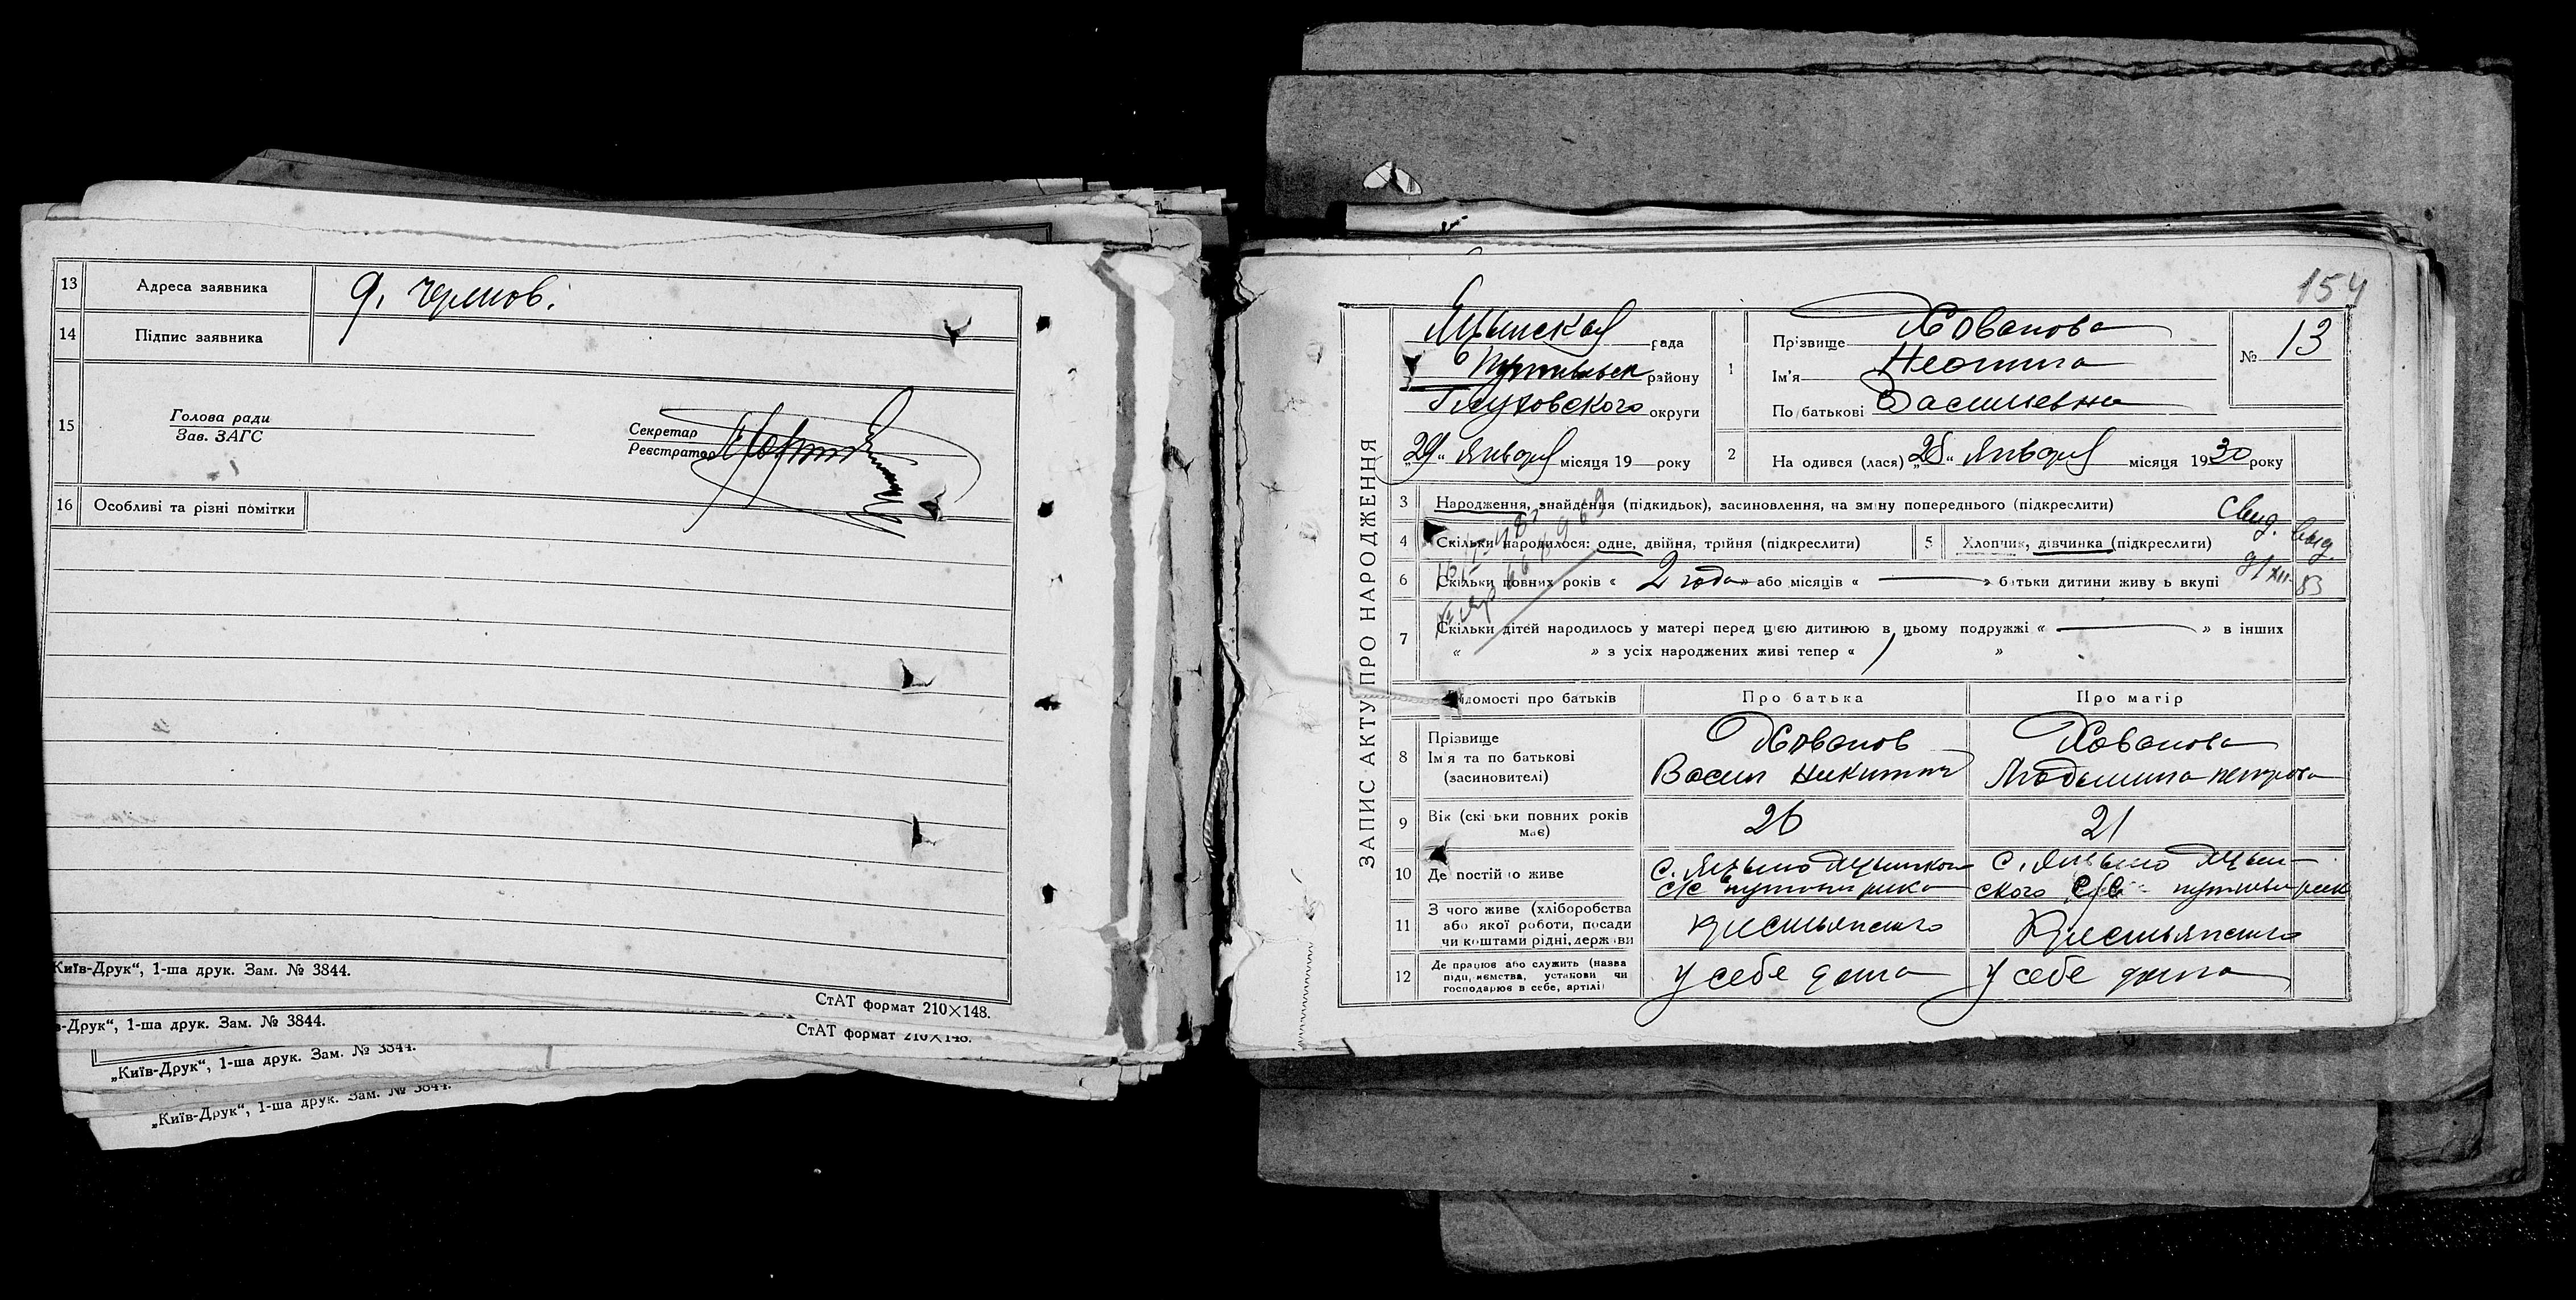 13 Адреса заявника д. Чернов.
14 Підпис заявника
15 Голова ради
Зав. ЗАГС
Секретар
Реєстратор
16 Особливі та різні помітки
Київ-Друк“, 1-ша друк. Зам. № 3844.
СтАТ формат 210×148.
в-Друк“, 1-ша друк. Зам. № 3844.
СтАТ формат 210×148.
„Київ-Друк“, 1-ша друк. Зам. № 3844.
„Київ-Друк“, 1-ша друк. Зам. № 3844.
154
ЗАПИС АКТУ ПРО НАРОДЖЕННЯ
Яцынская рада
Путивльск району
Глуховского округи
„29“ Января місяця 19 року
1 Прізвище Хованова
Ім'я Неонила
По батькові Васильевна
№ 13
2 На одився (лася) „28“ Января місяця 1930 року
3 Народження, знайдення (підкидьок), засиновлення, на зміну попереднього (підкреслити)
Свид. выд.
4 Скільки народилося: одне, двійня, трійня (підкреслити)
5 Хлопчик, дівчинка (підкреслити)
6 Скільки повних років « 2 года » або місяців « » батьки дитини живуть вкупі
7 Скільки дітей народилось у матері перед цією дитиною в цьому подружжі « » в інших
« » з усіх народжених живі тепер « »
Відомості про батьків Про батька Про матір
8 Прізвище
Ім'я та по батькові
(засиновителі)
Хованов
Васил Никитич
Хованова
Людмила Петрова
9 Вік (скільки повних років має) 26 21
10 Де постійно живе
с. Яцыно Яцынского
с/с Путивл р-на
с. Яцыно Яцын-
ского с/с Путивл р-на
11 З чого живе (хліборобства
або якої роботи, посади
чи коштами рідні, держави
Крестьянство
Крестьянство
12 Де працює або служить (назва
підприємства, установи чи
господарює в себе, артілі)
у себе дома
у себе дома